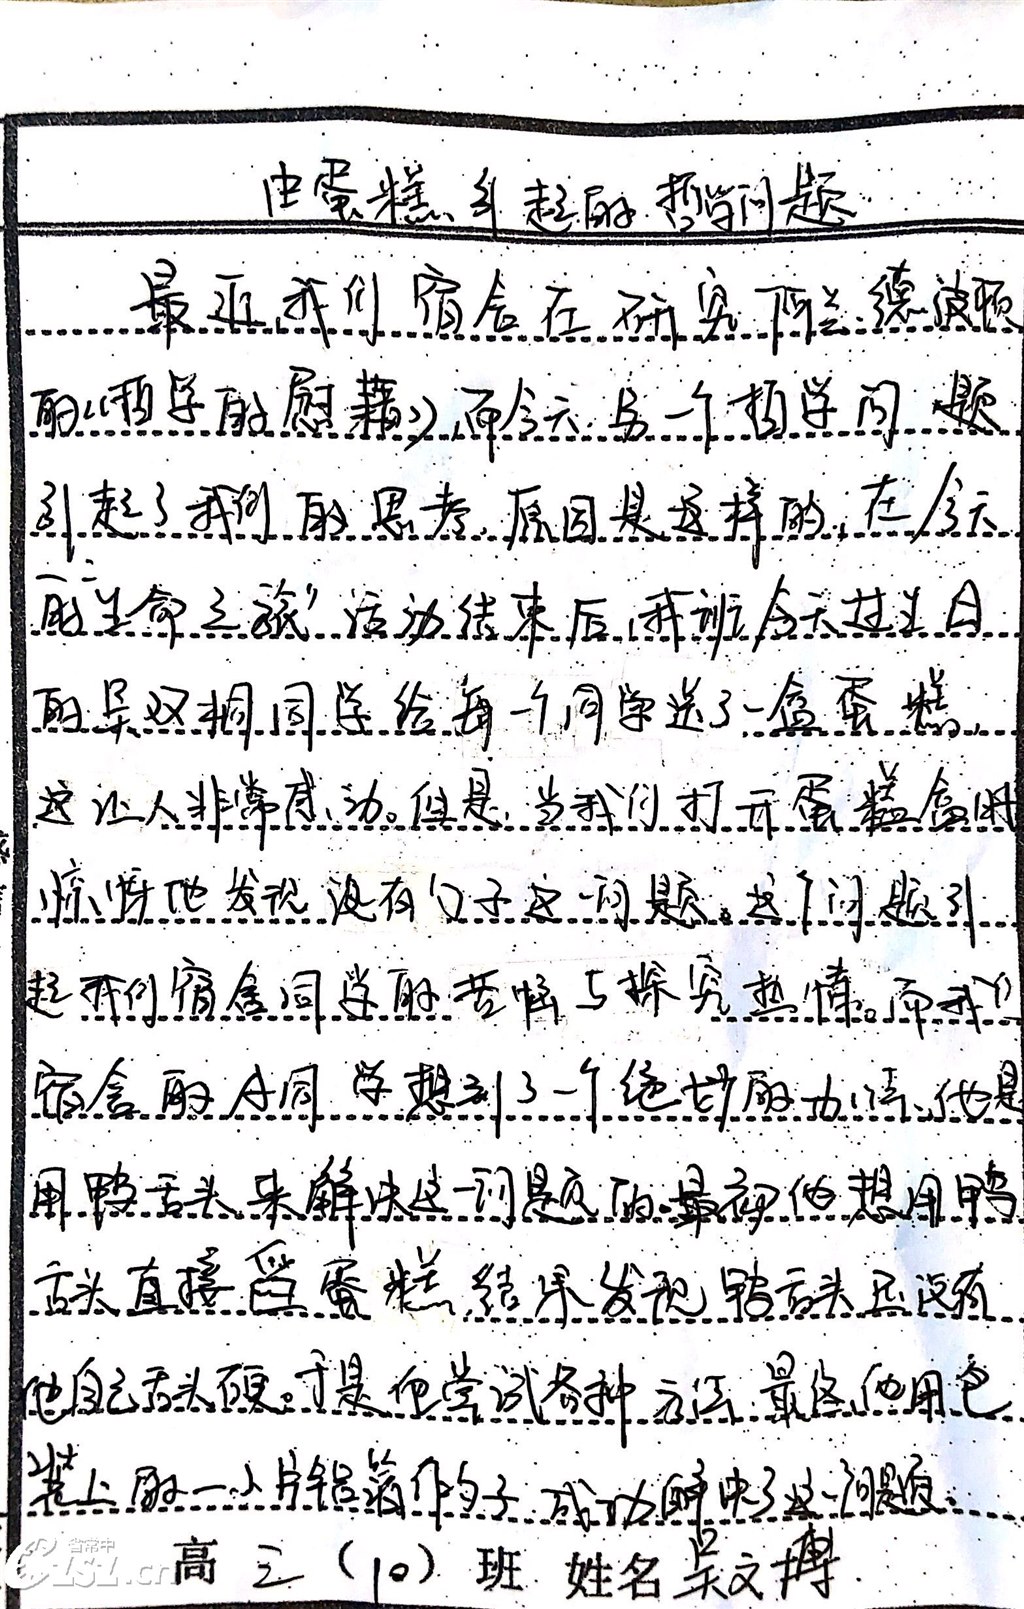 由蛋糕引起的哲学问题
最近,我们宿舍在研究阿兰·德波顿
的《哲学的慰藉》,而今天,另一个哲学问题
引起了我们的思考,原因是这样的,在今天
的“生命之旅”活动结束后,我班今天过生日
的吴双桐同学给每一个同学送了一盒蛋糕,
这让人非常感动。但是,当我们打开蛋糕盒时
惊讶地发现没有勺子这一问题。这个问题引
起我们宿舍同学的苦恼与探究热情。而我们
宿舍的A同学想到了一个绝妙的办法,他是
用鸭舌头来解决这一问题的。最初他想用鸭
舌头直接舀蛋糕,结果发现鸭舌头还没有
他自己舌头硬。于是他尝试各种方法,最终他用包
装上的一小片铝箔作勺子成功解决了这一问题。
高三(10)班 姓名 吴文博
省常中
CZSZ.cn